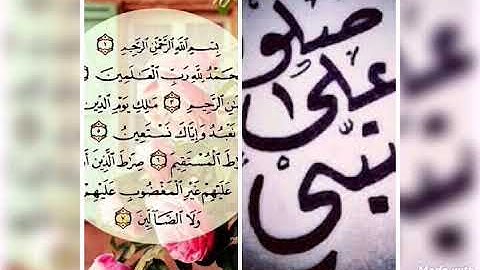 بِسْمِ اللَّهِ الرَّحْمَٰنِ الرَّحِيمِ ١
حَمْدُ لِلَّهِ رَبِّ الْعَالَمِينَ ٢
الرَّحِيمِ ٣ مَالِكِ يَوْمِ الدِّينِ
نَعْبُدُ وَإِيَّاكَ نَسْتَعِينُ ٥
الْمُسْتَقِيمَ ٦ صِرَاطَ الَّذِينَ
عَلَيْهِمْ غَيْرِ الْمَغْضُوبِ عَلَيْهِمْ
وَلَا الضَّالِّينَ ٧
صلو
على
نبي